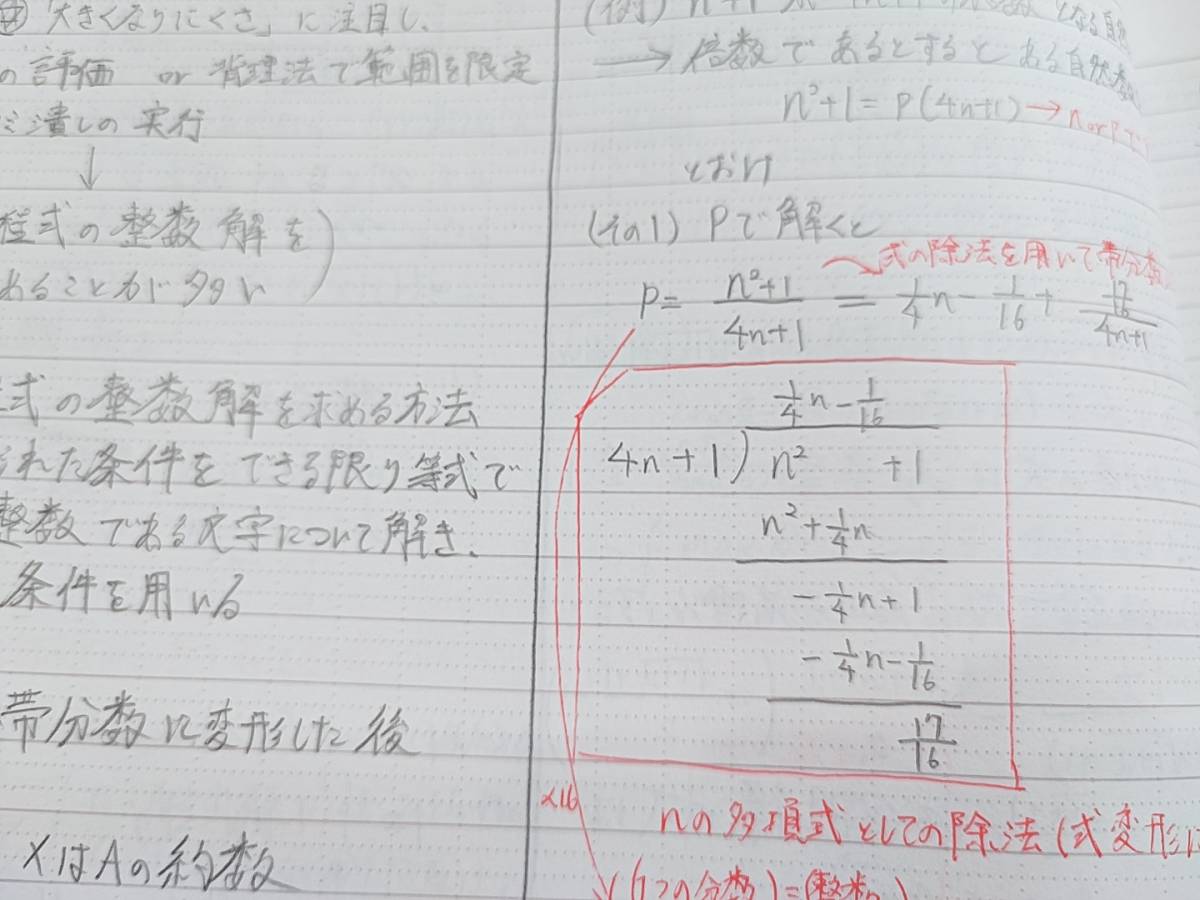 「大きくなりにくさ」に注目し、
の評価 or 背理法で範囲を限定
潰しの実行
↓
程式の整数解を
あることが多い)
式の整数解を求める方法
れた条件をできる限り等式で
整数である文字について解き、
条件を用いる
帯分数に変形した後
XはAの約数
(例)
→ 倍数であるとするとある自然数
n²+1=P(4n+1) → n or Pで
とおけ
(その1) Pで解くと
式の除法を用いて帯分数
P= n²+1/4n+1 = 1/4 n - 1/16 + 17/16/4n+1
1/4 n - 1/16
4n+1) n² +1
n²+1/4 n
-1/4 n+1
-1/4 n-1/16
17/16
×16
nの多項式としての除法(式変形
(1つの分数)=(整数)